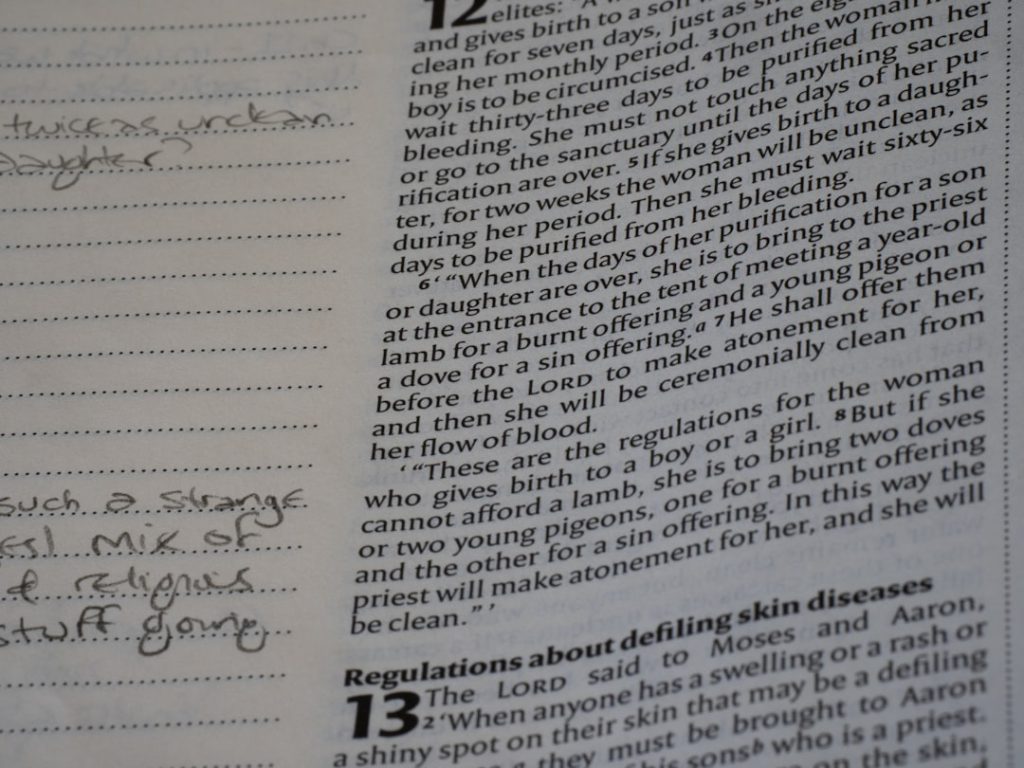 twice as unclean
daughter?
such a strange
mix of
& religious
stuff going
12 elites: "A
and gives birth to a son
clean for seven days, just as
ing her monthly period. 3On the
boy is to be circumcised. 4Then the woman
wait thirty-three days to be purified from her
bleeding. She must not touch anything sacred
or go to the sanctuary until the days of her pu-
rification are over. 5If she gives birth to a daugh-
ter, for two weeks the woman will be unclean, as
during her period. Then she must wait sixty-six
days to be purified from her bleeding.
6‘ “When the days of her purification for a son
or daughter are over, she is to bring to the priest
at the entrance to the tent of meeting a year-old
lamb for a burnt offering and a young pigeon or
a dove for a sin offering.a 7He shall offer them
before the LORD to make atonement for her,
and then she will be ceremonially clean from
her flow of blood.
‘ “These are the regulations for the woman
who gives birth to a boy or a girl. 8But if she
cannot afford a lamb, she is to bring two doves
or two young pigeons, one for a burnt offering
and the other for a sin offering. In this way the
priest will make atonement for her, and she will
be clean.” ’
Regulations about defiling skin diseases
13 The LORD said to Moses and Aaron,
2‘When anyone has a swelling or a rash or
a shiny spot on their skin that may be a defiling
they must be brought to Aaron
sonsb who is a priest.
on the skin,